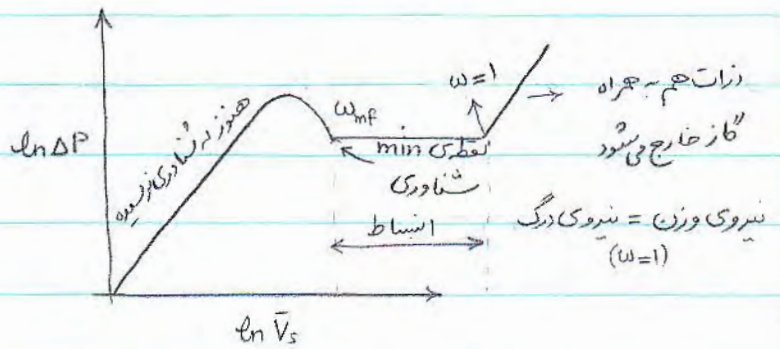 ln ΔP
هنوز به شناوری نرسیده
ω_mf
min نقطه‌ی
شناوری
انبساط
ω=1
ذرات هم به همراه
گاز خارج می‌شود
نیروی وزن = نیروی درگ
(ω=1)
ln V̄_s